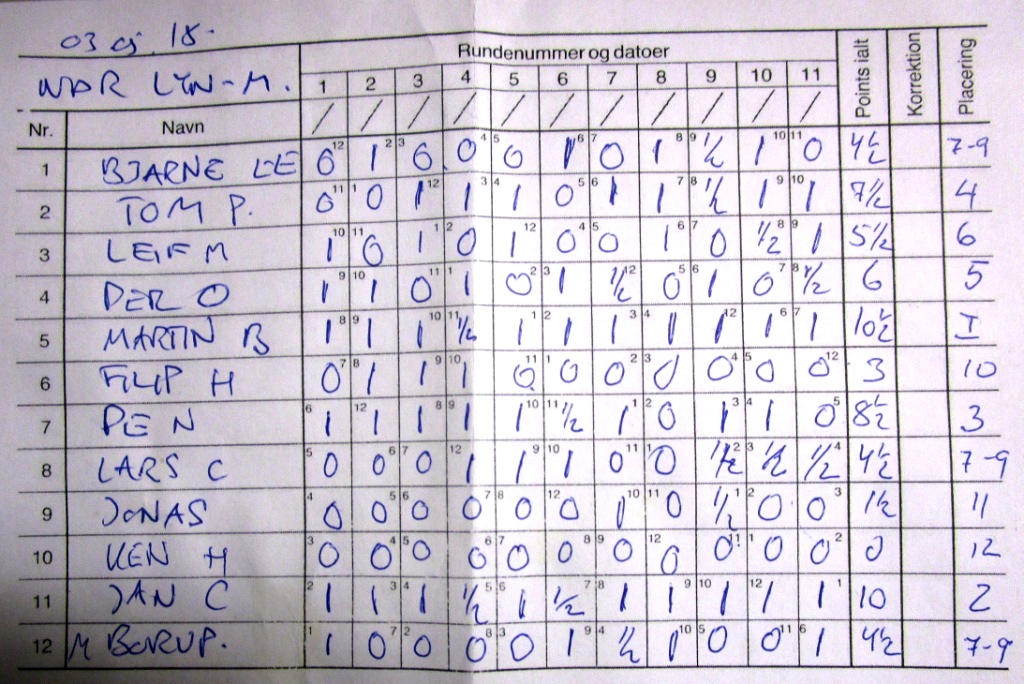 03 oj. 18.
Rundenummer og datoer
WDR LYN-M. 1 2 3 4 5 6 7 8 9 10 11 Points ialt Korrektion Placering
Nr. Navn / / / / / / / / / / /
1 BJARNE LE 0 12 1 2 3 0 0 4 5 0 1 6 7 0 1 8 9 ½ 1 10 11 0 4½ 7-9
2 TOM P. 0 11 1 0 1 12 1 3 4 1 0 5 6 1 1 7 8 ½ 1 9 10 1 7½ 4
3 LEIF M 1 10 11 0 1 1 2 0 1 12 0 4 5 0 1 6 7 0 ½ 8 9 1 5½ 6
4 PER O 1 9 10 1 0 11 1 1 0 2 3 1 ½ 12 0 5 6 1 0 7 8 ½ 6 5
5 MARTIN B 1 8 9 1 1 10 11 ½ 1 1 2 1 1 3 4 1 1 12 1 6 7 1 10½ I
6 FILIP H 0 7 8 1 1 9 10 1 0 11 1 0 0 2 3 0 0 4 5 0 0 12 3 10
7 PE N 6 1 12 1 1 8 9 1 1 10 11 ½ 1 1 2 0 1 3 4 1 0 5 8½ 3
8 LARS C 5 0 0 6 7 0 12 1 1 9 10 1 0 11 1 0 ½ 2 3 ½ ½ 4 4½ 7-9
9 JONAS 4 0 0 5 6 0 0 7 8 0 12 0 1 10 11 0 ½ 1 2 0 0 3 1½ 11
10 KEN H 3 0 0 4 5 0 0 6 7 0 0 8 9 0 12 0 0 11 1 0 0 2 0 12
11 JAN C 2 1 1 3 4 1 ½ 5 6 1 ½ 7 8 1 1 9 10 1 12 1 1 1 10 2
12 M BORUP. 1 1 0 7 2 0 0 8 3 0 1 9 4 ½ 1 10 5 0 0 11 6 1 4½ 7-9